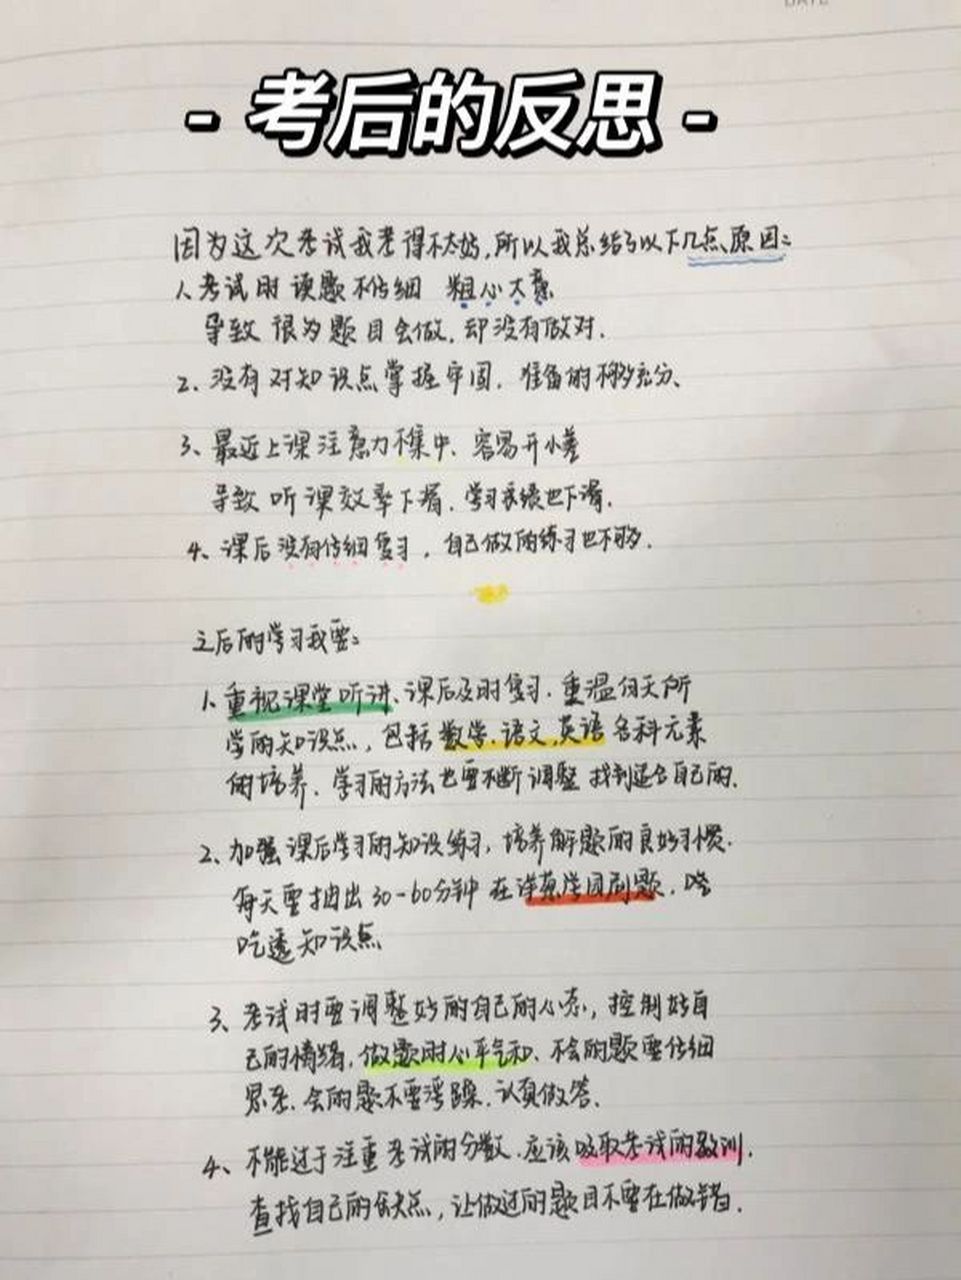 DATE
- 考后的反思 -
因为这次考试我考得不太好,所以我总结了以下几点原因:
1、考试时读题不仔细 粗心大意
导致很为题目会做,却没有做对.
2、没有对知识点掌握牢固.准备的不够充分、
3、最近上课注意力不集中、容易开小差
导致听课效率下滑.学习成绩也下滑.
4、课后没有仔细复习,自己做的练习也不够.
之后的学习我要:
1、重视课堂听讲、课后及时复习.重温每天所
学的知识点,包括数学.语文.英语各科元素
的培养、学习的方法也要不断调整 找到适合自己的.
2、加强课后学习的知识练习,培养解题的良好习惯.
每天要抽出30-60分钟在洋葱学园刷题.
吃透知识点
3、考试时要调整好的自己的心态,控制好自
己的情绪.做题时心平气和、不会的题要仔细
思考.会的题不要浮躁.认真做答、
4、不能过于注重考试的分数.应该吸取考试的教训.
查找自己的缺点,让做过的题目不要在做错.